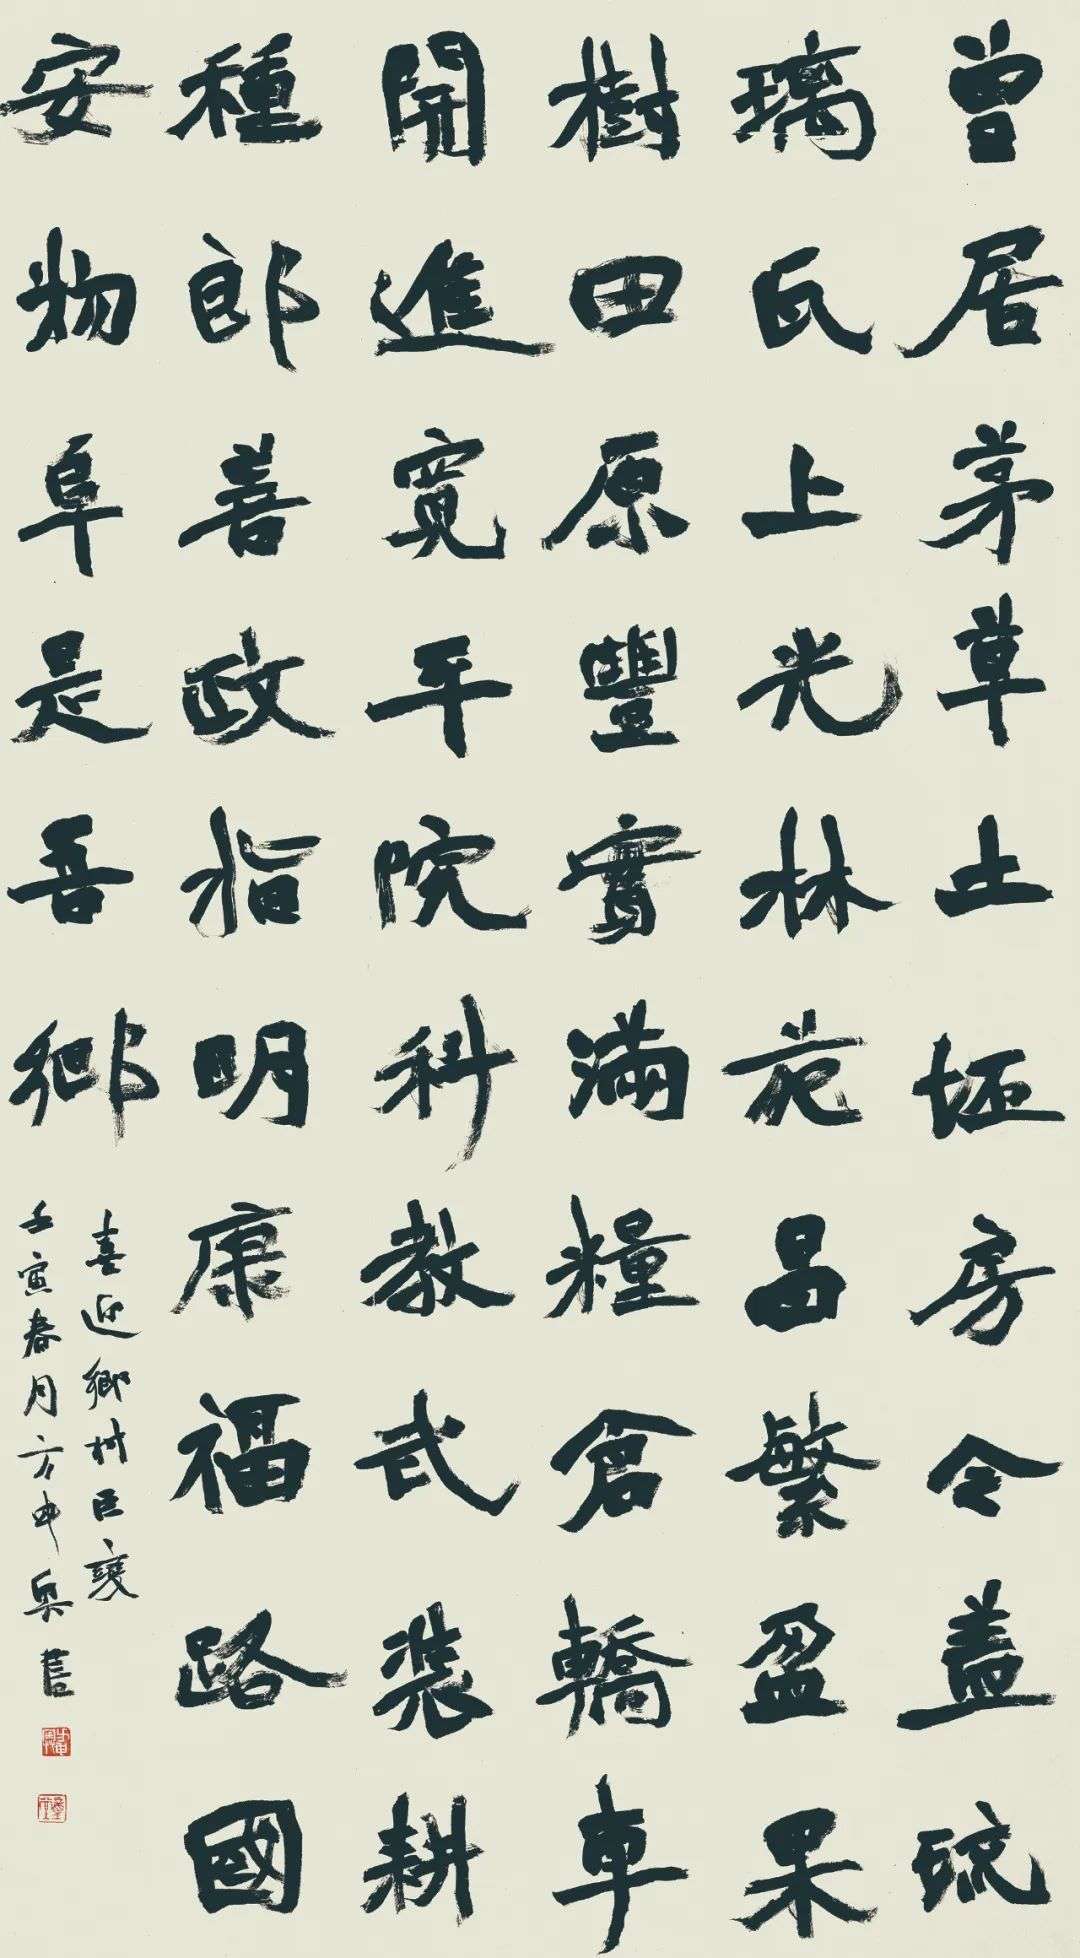 曾居茅草土坯房今盖琉
璃瓦上光林花昌繁盈果
樹田原豐實滿糧倉轎車
開進寬平院科教武裝耕
種郎善政指明康福路國
安物阜是吾鄉
喜迎鄉村巨變
壬寅春月方中